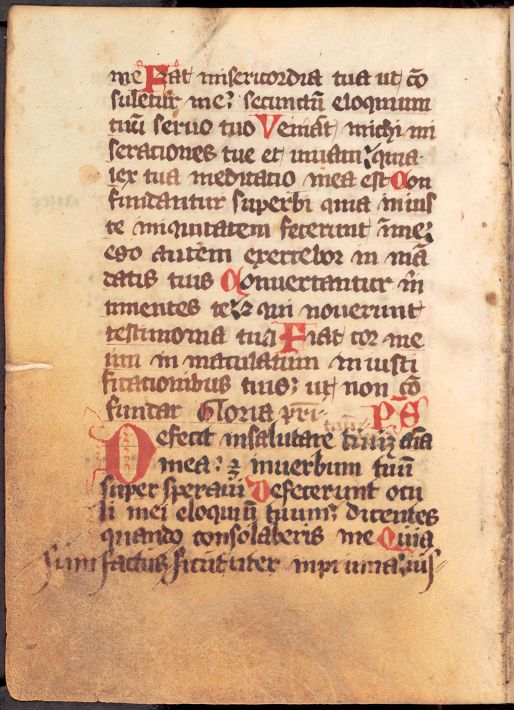 me Fiat misericordia tua ut cō
suletur me: secundū eloquium
tuū seruo tuo Veniāt michi mi
serationes tue et uiuam: quia
lex tua meditatio mea est Con
fundantur superbi quia inius
te iniquitatem fecerunt īme:
ego autem exercebor in mā
datis tuis Conuertantur m̄
timentes te: ⁊ qui nouerunt
testimonia tua Fiat cor me
um inmaculatum in iusti
ficationibus tuis: ut non cō
fundar Gloria pr̄i. P̄S
Defecit insalutare tuū aīa
mea: ⁊ inuerbum tuū
super speraui Defecerunt ocu
li mei eloquiū tuum: dicentes
quando consolaberis me Quia
sum factus sicut uter inpruina: ius